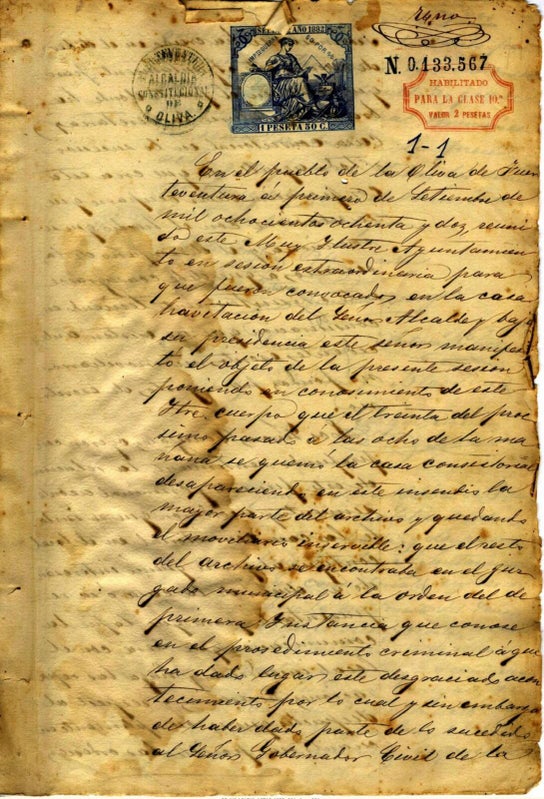 ALCALDIA
CONSTITUCIONAL
DE
OLIVA
AÑO 1882
1 PESETA 50 C.
N. 0.133.567
HABILITADO
PARA LA CLASE 10.ª
VALOR 2 PESETAS
1-1
En el pueblo de la Oliva de Fuer
teventura á primero de Setiembre de
mil ochocientos ochenta y dos, reuni
do este Muy Ilustre Ayuntamien
to en sesion estraordinaria para
que fueron convocados en la casa
havitacion del Señor Alcalde y bajo
su presidencia este señor manifes
to el objeto de la presente sesion
poniendo en conosimiento de este
Itre. cuerpo que el treinta del pro
simo pasado á las ocho de la ma
ñana se quemó la casa consistorial
desapareciendo en este insendio la
mayor parte del archivo y quedando
el moviliario inservible: que el resto
del archivo se encontraba en el Juz
gado municipal á la orden del de
primera Instancia que conose
en el procedimiento creminal á que
ha dado lugar este desgraciado acon
tecimiento por lo cual y sin embargo
de haber dado parte de lo sucedido
al Señor Gobernador Civil de la